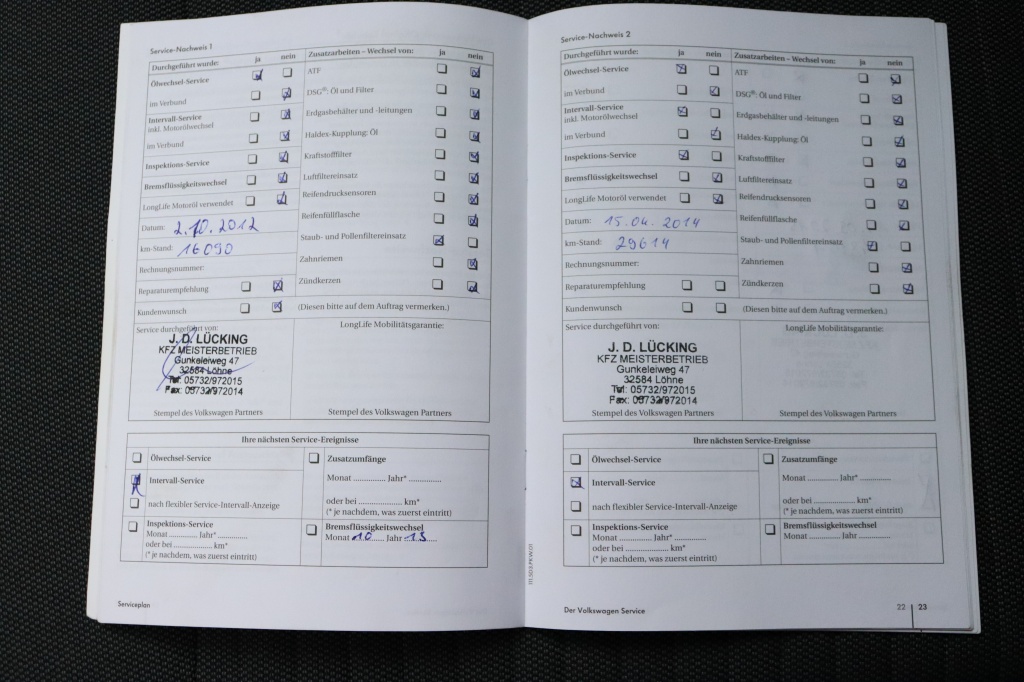 Service-Nachweis 1
Durchgeführt wurde: ja nein
Ölwechsel-Service
im Verbund
Intervall-Service
inkl. Motorölwechsel
im Verbund
Inspektions-Service
Bremsflüssigkeitswechsel
LongLife Motoröl verwendet
Datum: 2.10.2012
km-Stand: 16090
Rechnungsnummer:
Reparaturempfehlung
Kundenwunsch
Zusatzarbeiten – Wechsel von: ja nein
ATF
DSG®: Öl und Filter
Erdgasbehälter und -leitungen
Haldex-Kupplung: Öl
Kraftstofffilter
Luftfiltereinsatz
Reifendrucksensoren
Reifenfüllflasche
Staub- und Pollenfiltereinsatz
Zahnriemen
Zündkerzen
(Diesen bitte auf dem Auftrag vermerken.)
Service durchgeführt von:
J. D. LÜCKING
KFZ MEISTERBETRIEB
Gunkeleiweg 47
32584 Löhne
Tel: 05732/972015
Fax: 05732/972014
Stempel des Volkswagen Partners
LongLife Mobilitätsgarantie:
Stempel des Volkswagen Partners
Ihre nächsten Service-Ereignisse
Ölwechsel-Service
Intervall-Service
nach flexibler Service-Intervall-Anzeige
Inspektions-Service
Monat ........... Jahr* ............
oder bei ...................... km*
(* je nachdem, was zuerst eintritt)
Zusatzumfänge
Monat ............ Jahr* .............
oder bei ..................... km*
(* je nachdem, was zuerst eintritt)
Bremsflüssigkeitswechsel
Monat 10 Jahr 13
Serviceplan
Service-Nachweis 2
Durchgeführt wurde: ja nein
Ölwechsel-Service
im Verbund
Intervall-Service
inkl. Motorölwechsel
im Verbund
Inspektions-Service
Bremsflüssigkeitswechsel
LongLife Motoröl verwendet
Datum: 15.04.2014
km-Stand: 29614
Rechnungsnummer:
Reparaturempfehlung
Kundenwunsch
Zusatzarbeiten – Wechsel von: ja nein
ATF
DSG®: Öl und Filter
Erdgasbehälter und -leitungen
Haldex-Kupplung: Öl
Kraftstofffilter
Luftfiltereinsatz
Reifendrucksensoren
Reifenfüllflasche
Staub- und Pollenfiltereinsatz
Zahnriemen
Zündkerzen
(Diesen bitte auf dem Auftrag vermerken.)
Service durchgeführt von:
J. D. LÜCKING
KFZ MEISTERBETRIEB
Gunkeleiweg 47
32584 Löhne
Tel: 05732/972015
Fax: 05732/972014
Stempel des Volkswagen Partners
LongLife Mobilitätsgarantie:
Stempel des Volkswagen Partners
Ihre nächsten Service-Ereignisse
Ölwechsel-Service
Intervall-Service
nach flexibler Service-Intervall-Anzeige
Inspektions-Service
Monat ........... Jahr* ............
oder bei ...................... km*
(* je nachdem, was zuerst eintritt)
Zusatzumfänge
Monat ............ Jahr* .............
oder bei ..................... km*
(* je nachdem, was zuerst eintritt)
Bremsflüssigkeitswechsel
Monat ............ Jahr .............
Der Volkswagen Service
22 23